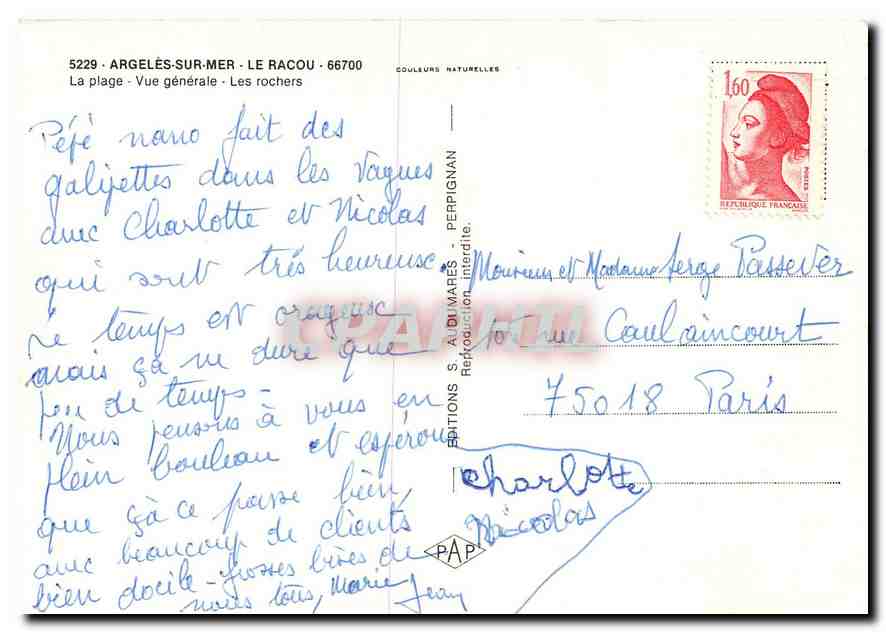 5229 - ARGELÈS-SUR-MER - LE RACOU - 66700
La plage - Vue générale - Les rochers
COULEURS NATURELLES
Pépé nano fait des
galipettes dans les vagues
avec Charlotte et Nicolas
qui sont très heureuse.
Le temps est orageusc
mais ça ne dure que
peu de temps -
Nous pensons à vous en
plein bouleau et espérons
que çà ce passe bien,
avec beaucoup de clients
bien docile - grosses bises de
nous tous, Marie
Jean
EDITIONS S. AUDUMARES - PERPIGNAN
Reproduction interdite.
1,60
POSTES
REPUBLIQUE FRANÇAISE
Monsieur et Madame Serge Passevèr
rue Caulaincourt
75018 Paris
charlotte
Nicolas
PAP
CPAPHIL